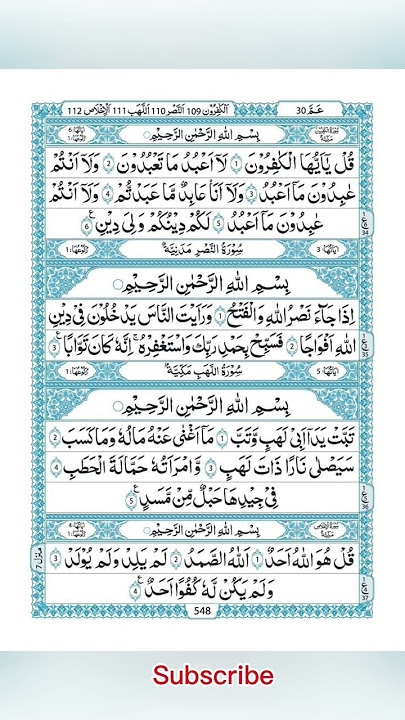 الكٰفرون 109 النّصر 110 اللّهب 111 الإخلاص 112
عمّ 30
بِسْمِ اللهِ الرَّحْمٰنِ الرَّحِيْمِ
قُلْ يٰٓاَيُّهَا الْكٰفِرُوْنَ ۙ1 لَآ اَعْبُدُ مَا تَعْبُدُوْنَ ۙ2 وَلَآ اَنْتُمْ
عٰبِدُوْنَ مَآ اَعْبُدُ ۚ3 وَلَآ اَنَا۠ عَابِدٌ مَّا عَبَدْتُّمْ ۙ4 وَلَآ اَنْتُمْ
عٰبِدُوْنَ مَآ اَعْبُدُ ۗ5 لَكُمْ دِيْنُكُمْ وَلِيَ دِيْنِ 6
اٰيَاتُهَا: 3 سُوْرَةُ النَّصْرِ مَدَنِيَّةٌ رُكُوْعُهَا: 1
بِسْمِ اللهِ الرَّحْمٰنِ الرَّحِيْمِ
اِذَا جَآءَ نَصْرُ اللهِ وَالْفَتْحُ ۙ1 وَرَاَيْتَ النَّاسَ يَدْخُلُوْنَ فِيْ دِيْنِ
اللهِ اَفْوَاجًا ۙ2 فَسَبِّحْ بِحَمْدِ رَبِّكَ وَاسْتَغْفِرْهُ ؕ اِنَّهٗ كَانَ تَوَّابًا 3
اٰيَاتُهَا: 5 سُوْرَةُ اللَّهَبِ مَكِّيَّةٌ رُكُوْعُهَا: 1
بِسْمِ اللهِ الرَّحْمٰنِ الرَّحِيْمِ
تَبَّتْ يَدَآ اَبِيْ لَهَبٍ وَّتَبَّ ؕ1 مَآ اَغْنٰى عَنْهُ مَالُهٗ وَمَا كَسَبَ ؕ2
سَيَصْلٰى نَارًا ذَاتَ لَهَبٍ ۚ3 وَّامْرَاَتُهٗ ؕ حَمَّالَةَ الْحَطَبِ ۚ4
فِيْ جِيْدِهَا حَبْلٌ مِّنْ مَّسَدٍ 5
بِسْمِ اللهِ الرَّحْمٰنِ الرَّحِيْمِ
قُلْ هُوَ اللهُ اَحَدٌ ۚ1 اَللهُ الصَّمَدُ ۚ2 لَمْ يَلِدْ وَلَمْ يُوْلَدْ ۙ3
منزل 7
وَلَمْ يَكُنْ لَّهٗ كُفُوًا اَحَدٌ 4
548
Subscribe